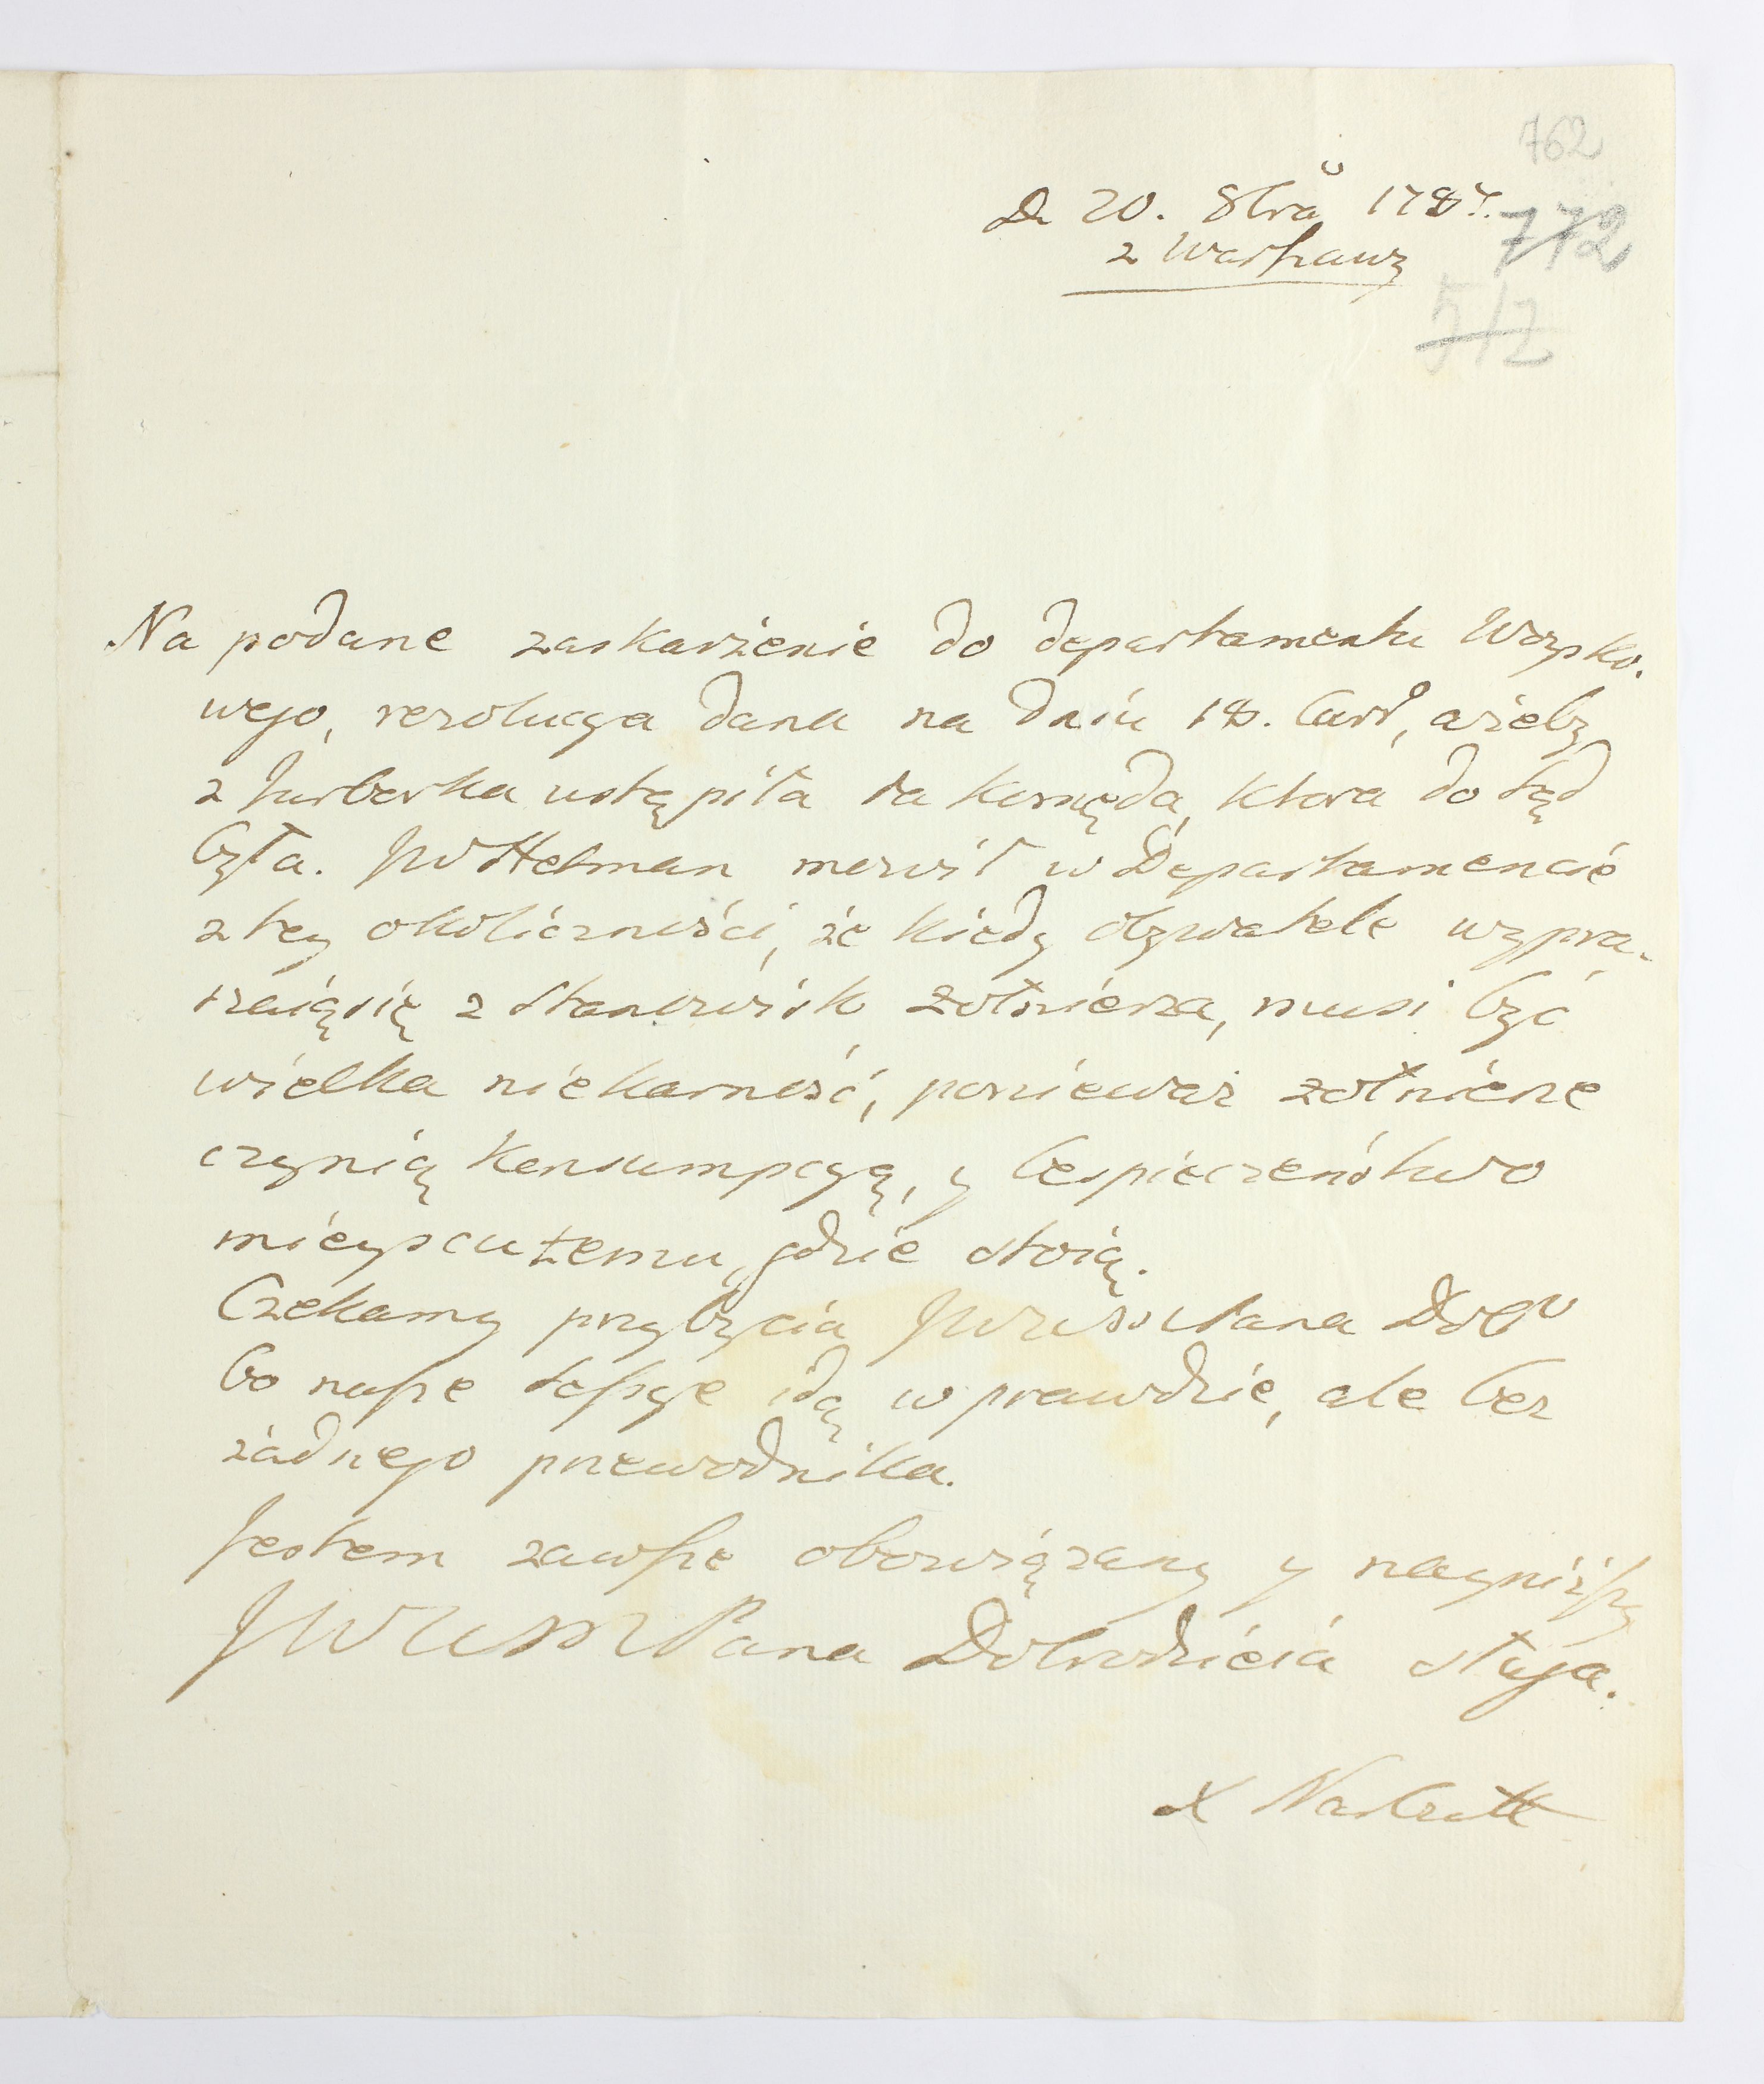 762
D 20. 8bra 1787.
772
z Warszawy
512
Na podane zaskarżenie do departamentu Woysko-
wego, rezolucya dana na dniu 18. Curr, ażeby
z Jurborka ustąpiła ta komęda, ktora do tąd
była. JW Hetman mowił w Departamencie
z tey okoliczności, że kiedy obywatele wypra-
szaią się z stanowisk żołnierza, musi być
wielka niekarność, ponieważ żołnierze
czynią konsumpcyą, y bespieczeństwo
mieyscu temu, gdzie stoią.
Czekamy przybycia JWWM Pana Dobr
bo nasze sessye idą w prawdzie, ale bez
żadnego przewodnika.
Jestem zawsze obowiązany y nayniższy
JWWM Pana Dobrodzieia sługa.
X Narbutt